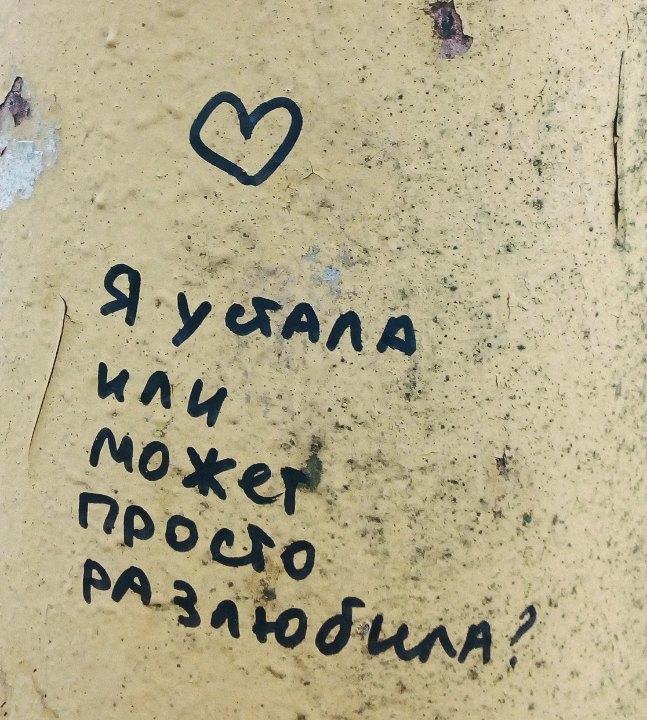 Я устала
или
может
просто
разлюбила?